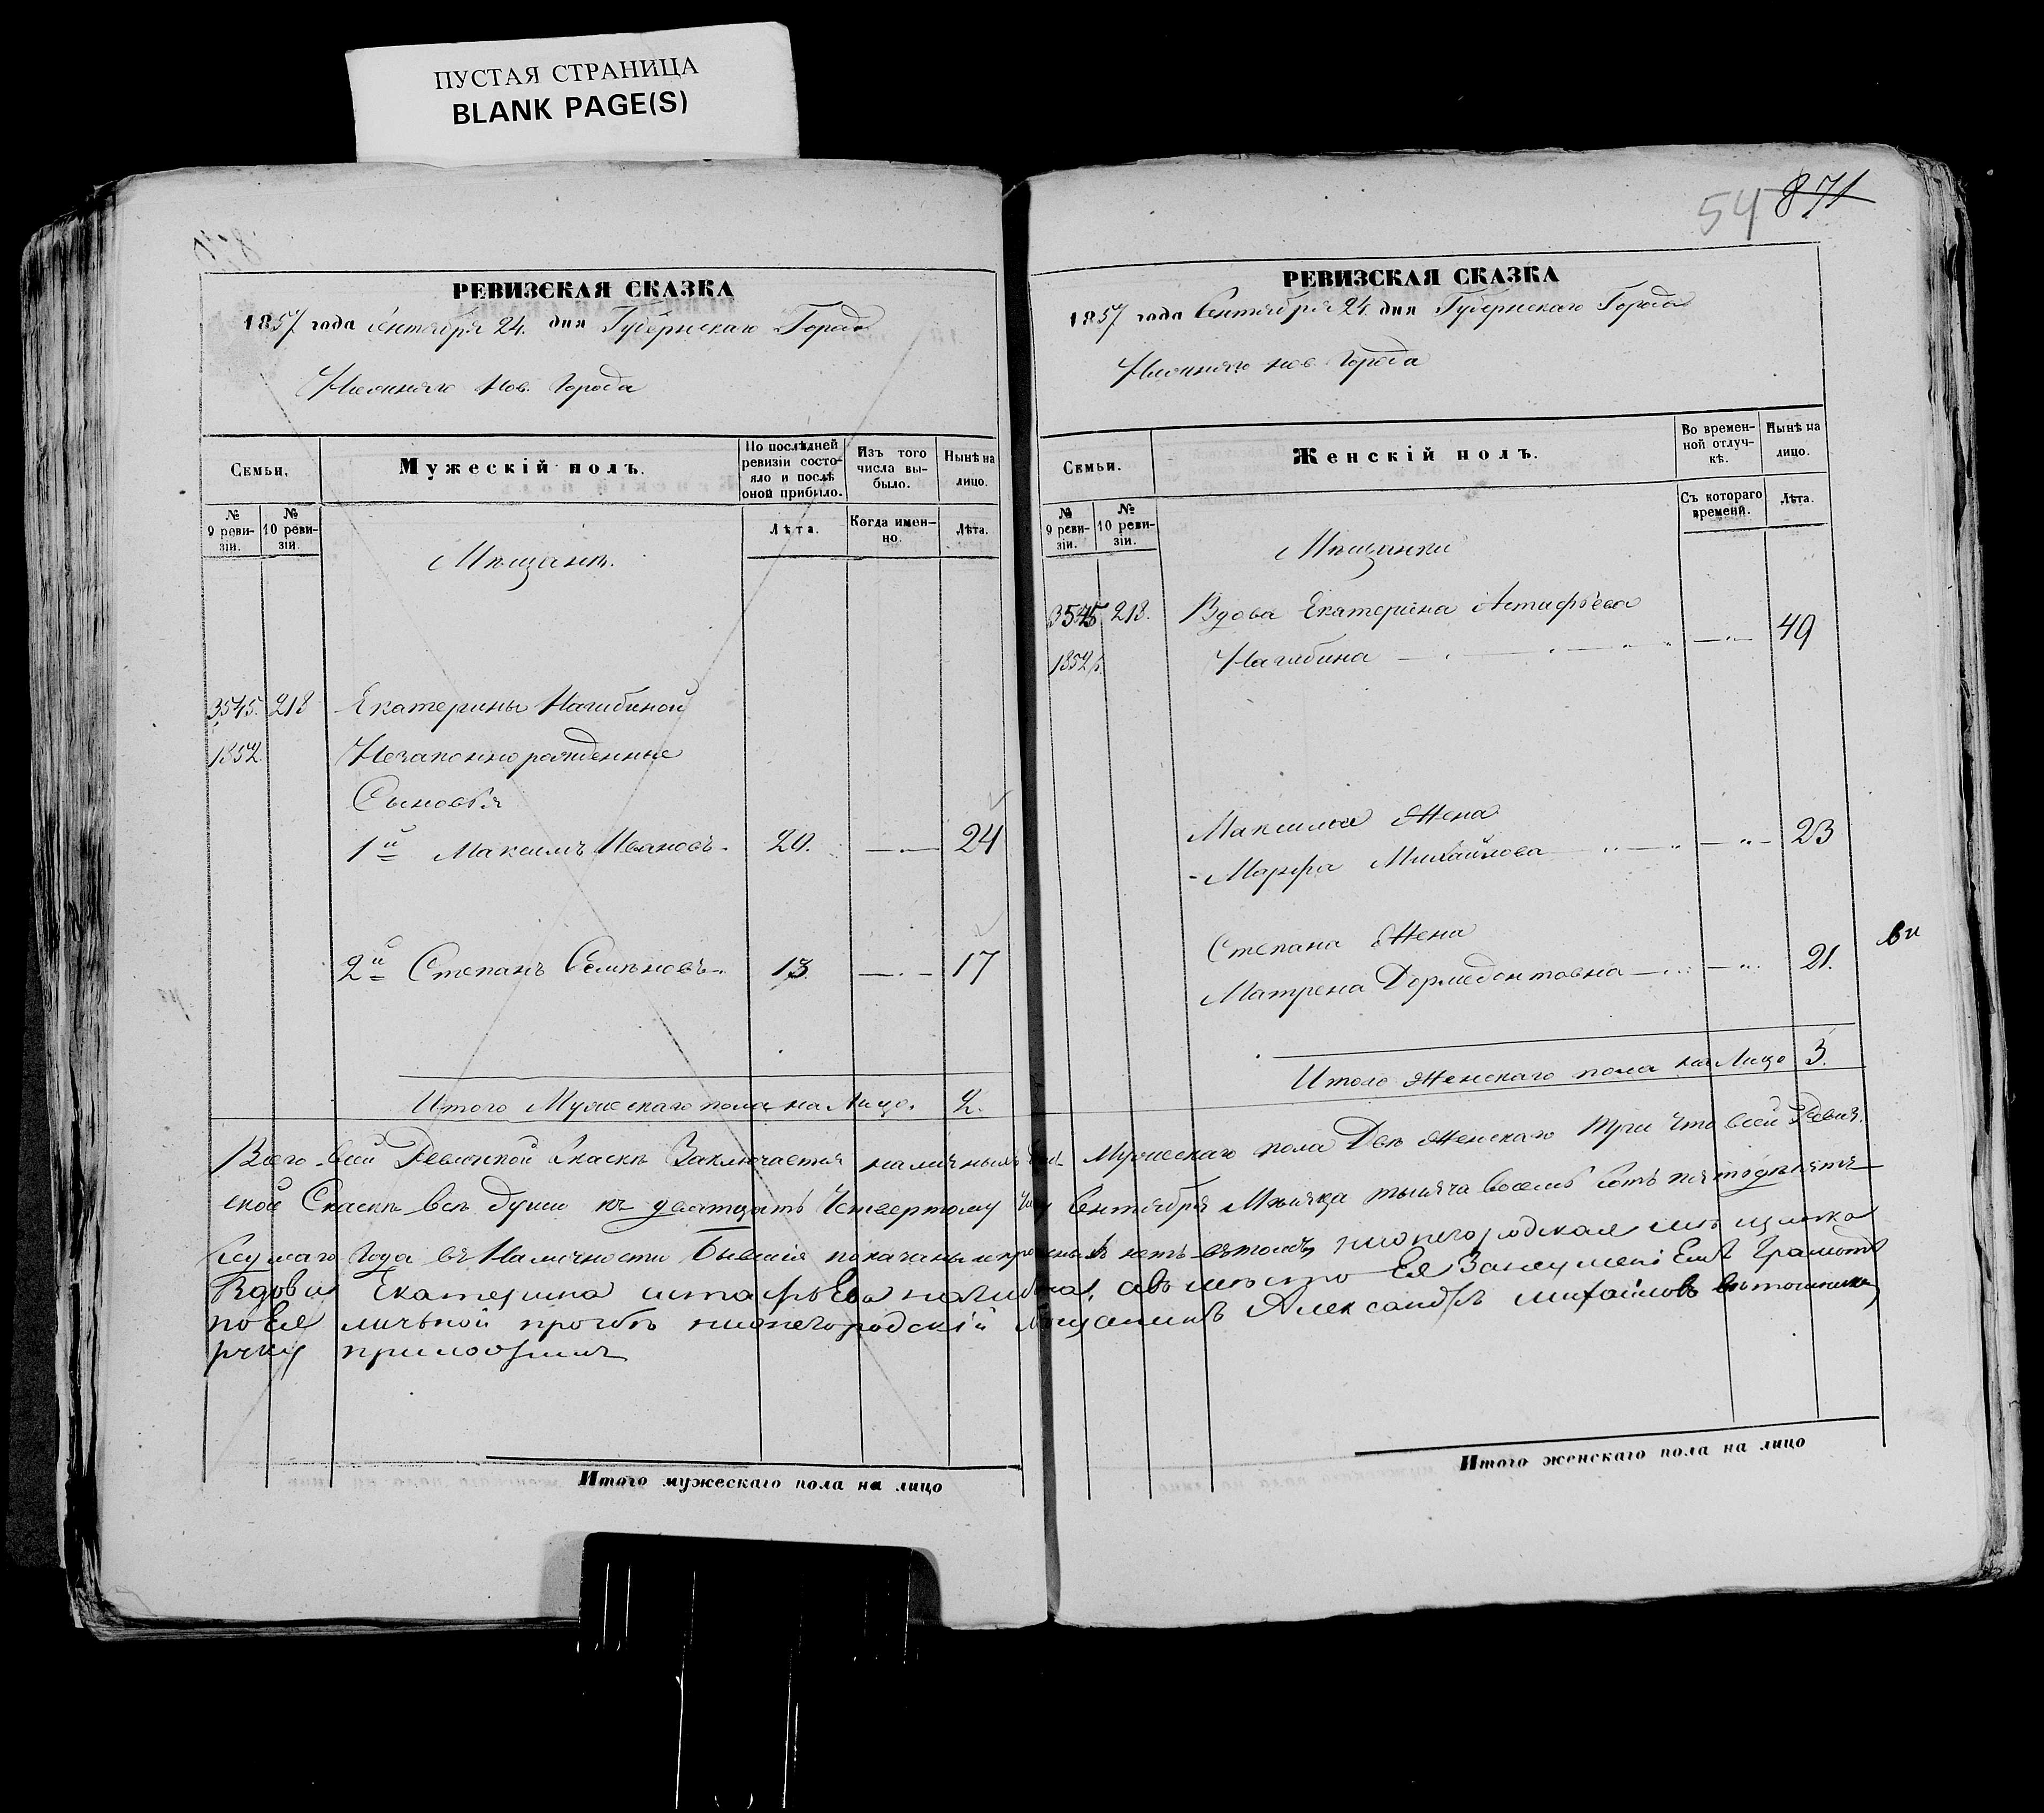 ПУСТАЯ СТРАНИЦА
BLANK PAGE(S)
РЕВИЗСКАЯ СКАЗКА
1857 года Сентября 24. дня Губернскаго Города
Нижняго Нов. Города
Семьи.
Мужескій полъ.
По послѣдней ревизіи состояло и послѣ оной прибыло.
Изъ того числа выбыло.
Нынѣ на лицо.
№ 9 ревизіи.
№ 10 ревизіи.
Лѣта.
Когда именно.
Лѣта.
Мѣщане.
3545. 218 Екатерины Нагибиной
1852. Незаконнорожденные
Сыновья
1й Максимъ Ивановъ 20. 24
2й Степанъ Семеновъ 13 17
Итого Мужескаго пола на Лицо. 2.
54 871
РЕВИЗСКАЯ СКАЗКА
1857 года Сентября 24. дня Губернскаго Города
Нижняго нов. Города
Семьи.
Женскій полъ.
Во временной отлучкѣ.
Нынѣ на лицо.
№ 9 ревизіи.
№ 10 ревизіи.
Съ котораго времени.
Лѣта.
Мѣщанки
3545 218. Вдова Екатерина Астафьева
1852 Нагибина 49
Максима Жена
Марфа Михайлова 23
Степана Жена
Матрена Дормедонтовна 21.
Итого Женскаго пола на Лицо 3.
Всего всей Ревизской Скаскѣ Заключается наличныхъ Мужескаго пола Двѣ Женскаго Три Что всей Ревиз
ской Скаскѣ всѣ души къ двадцать Четвертому Сентября Мѣсяца тысяча восемь сотъ пятьдесятъ
Седьмаго Года въ Наличности Бывшія показаны и нетъ въ томъ нижегородская мещанка
Вдова Екатерина астафьева нагибина, а вместо Ея Грамоте
по Ея личьной прозбе нижегородскій мещанинъ Александръ михаиловъ
руку приложилъ
Итого мужескаго пола на лицо
Итого женскаго пола на лицо